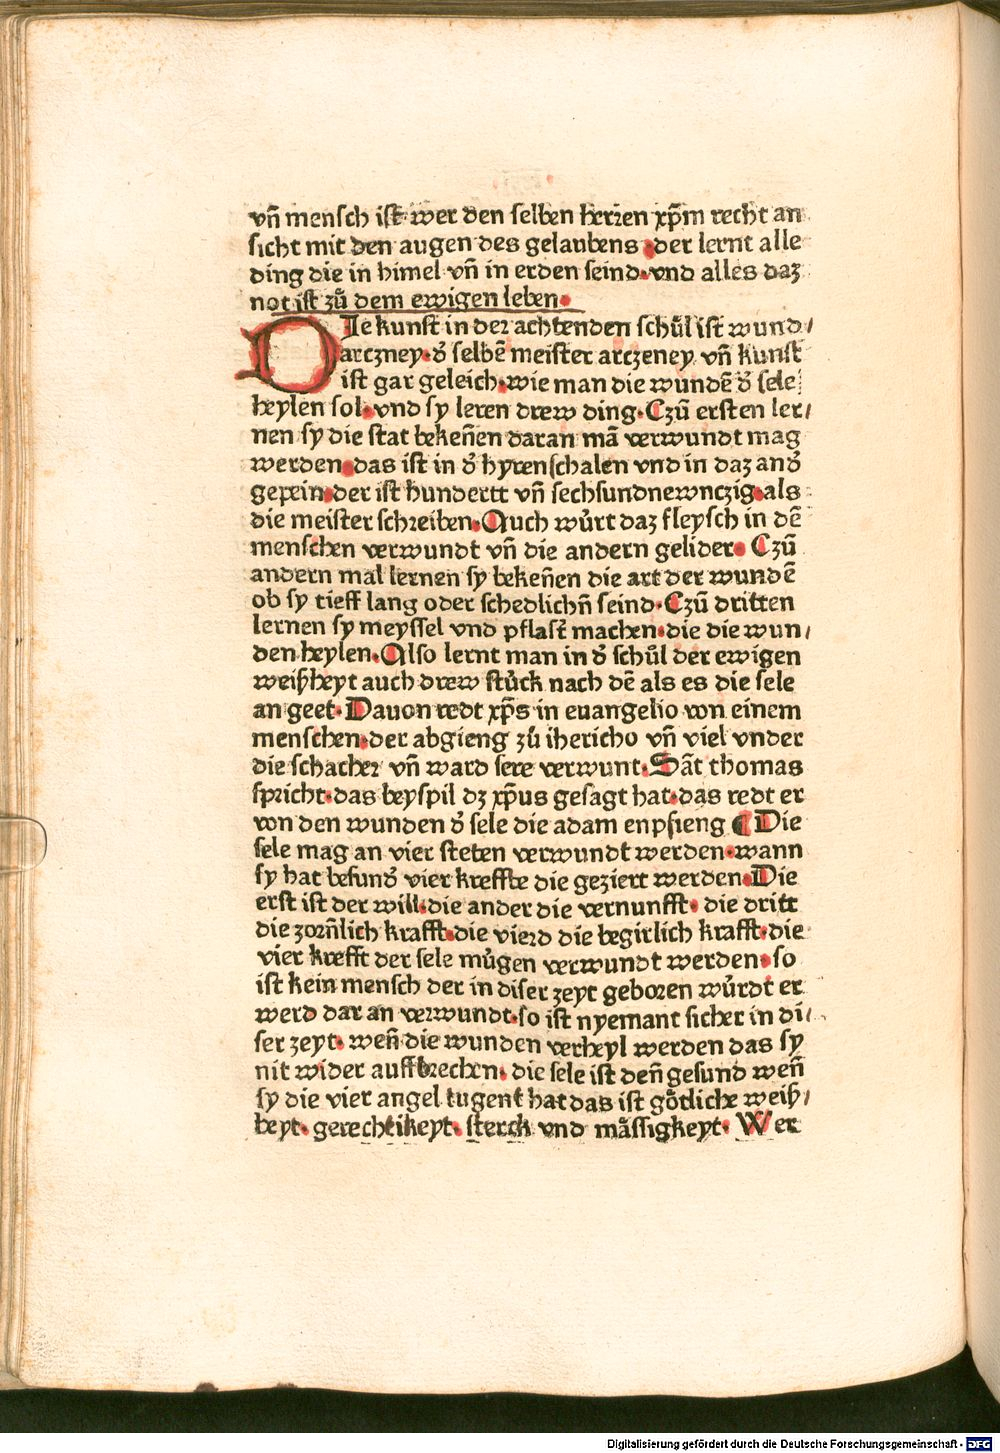 vñ mensch ist· wer den selben herren xp̄m recht an
sicht mit den augen des gelaubens· der lernt alle
ding die in himel vñ in erden seind· vnd alles daz
not ist zů dem ewigen leben·
DIe kunst in der achtenden schůl ist wund/
arczney· d᷑ selbē meister arczeney vñ kunst
ist gar geleich· wie man die wundē d᷑ sele
heylen sol· vnd sy leren drew ding· Czů ersten ler/
nen sy die stat bekeñen daran mā verwundt mag
werden· das ist in d᷑ hyrenschalen vnd in daz and᷑
gepein· der ist hundertt vñ sechsundnewnczig· als
die meister schreiben· Auch wůrt daz fleysch in dē
menschen verwundt vñ die andern gelider· Czů
andern mal lernen sy bekeñen die art der wundē
ob sy tieff lang oder schedlichñ seind· Czů dritten
lernen sy meyssel vnd pflast᷑ machen· die die wun/
den heylen· Also lernt man in d᷑ schůl der ewigen
weißheyt auch drew stůck nach dē als es die sele
an geet· Dauon redt xp̄s in euangelio von einem
menschen· der abgieng zů ihericho vñ viel vnder
die schacher vñ ward sere verwunt· Sāt thomas
spricht· das beyspil dz xp̄us gesagt hat· das redt er
von den wunden d᷑ sele die adam enpfieng ¶ Die
sele mag an vier steten verwundt werden· wann
sy hat besund᷑ vier kreffte die geziert werden· Die
erst ist der will· die ander die vernunfft· die dritt
die zorñlich krafft· die vierd die begirlich krafft· die
vier krefft der sele můgen verwundt werden· so
ist kein mensch der in diser zeyt geboren wůrdt er
werd dar an verwundt· so ist nyemant sicher in di/
ser zeyt· weñ die wunden verheyl werden das sy
nit wider auffbrechen· die sele ist deñ gesund weñ
sy die vier angel tugent hat das ist gǒtliche weiß/
heyt· gerechtikeyt· sterck vnd mǎssigkeyt· Wer
Digitalisierung gefördert durch die Deutsche Forschungsgemeinschaft - DFG